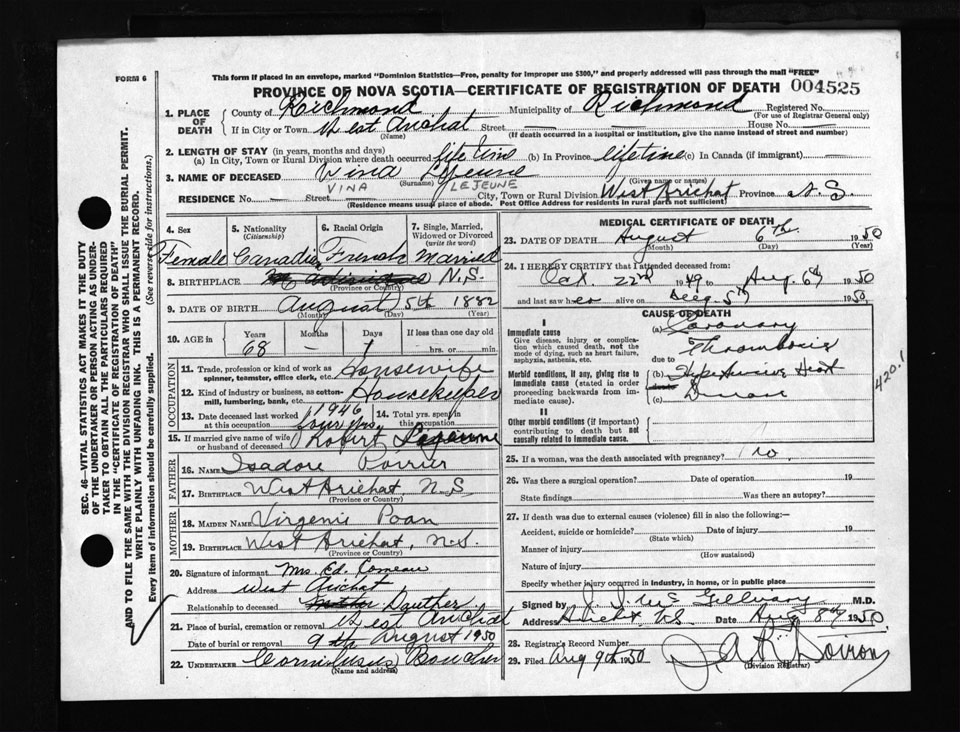 FORM 6
This form if placed in an envelope, marked "Dominion Statistics—Free, penalty for improper use $300," and properly addressed will pass through the mail "FREE"
PROVINCE OF NOVA SCOTIA—CERTIFICATE OF REGISTRATION OF DEATH 004525
1. PLACE OF DEATH County of Richmond Municipality of Richmond Registered No.
(For use of Registrar General only)
If in City or Town West Arichat Street — House No. —
(Name) (If death occurred in a hospital or institution, give the name instead of street and number)
2. LENGTH OF STAY (in years, months and days)
(a) In City, Town or Rural Division where death occurred life time (b) In Province lifetime (c) In Canada (if immigrant) —
3. NAME OF DECEASED Vina Lejeune
VINA (Surname) LEJEUNE (Given name or names)
RESIDENCE No. — Street — City, Town or Rural Division West Arichat Province N.S.
(Residence means usual place of abode. Post Office Address for residents in rural parts not sufficient)
4. Sex 5. Nationality (Citizenship) 6. Racial Origin 7. Single, Married, Widowed or Divorced (write the word)
Female Canadian French Married
8. BIRTHPLACE N.S.
(Province or Country)
9. DATE OF BIRTH August 5th 1882
(Month) (Day) (Year)
10. AGE in Years Months Days If less than one day old
68 — 1 hrs. or min.
OCCUPATION
11. Trade, profession or kind of work as spinner, teamster, office clerk, etc. Housewife
12. Kind of industry or business, as cotton-mill, lumbering, bank, etc. Housekeeper
13. Date deceased last worked at this occupation 1946 14. Total yrs. spent in this occupation
four yrs.
15. If married give name of wife or husband of deceased Robert Lejeune
FATHER
16. NAME Isadore Poirier
17. BIRTHPLACE West Arichat, N.S.
(Province or Country)
MOTHER
18. MAIDEN NAME Virgenie Poan
19. BIRTHPLACE West Arichat, N.S.
(Province or Country)
20. Signature of informant Mrs. Ed. Comeau
Address West Arichat
Relationship to deceased Dauther
21. Place of burial, cremation or removal West Arichat
Date of burial or removal 9th August 1950
22. UNDERTAKER Boucher
(Name and address)
MEDICAL CERTIFICATE OF DEATH
23. DATE OF DEATH August 6th 1950
(Month) (Day) (Year)
24. I HEREBY CERTIFY that I attended deceased from:
Oct. 22nd 1949 to Aug. 6th 1950
and last saw her alive on Aug. 5th 1950.
CAUSE OF DEATH
I
Immediate cause (a) Coronary
Give disease, injury or complication which caused death, not the mode of dying, such as heart failure, asphyxia, asthenia, etc. Thrombosis
due to
Morbid conditions, if any, giving rise to immediate cause (stated in order proceeding backwards from immediate cause). (b) Hypertensive Heart
(c) Disease
420.1
II
Other morbid conditions (if important) contributing to death but not causally related to immediate cause.
25. If a woman, was the death associated with pregnancy? No.
26. Was there a surgical operation? Date of operation 19
State findings Was there an autopsy?
27. If death was due to external causes (violence) fill in also the following:
Accident, suicide or homicide? Date of injury 19
(State which)
Manner of injury
(How sustained)
Nature of injury
Specify whether injury occurred in industry, in home, or in public place
Signed by Gillvary M.D.
Address Arichat N.S. Date Aug 8th 1950
28. Registrar's Record Number
29. Filed Aug 9th 1950 Doiron
(Division Registrar)
SEC. 46—VITAL STATISTICS ACT MAKES IT THE DUTY
OF THE UNDERTAKER OR PERSON ACTING AS UNDERTAKER TO OBTAIN ALL THE PARTICULARS REQUIRED
IN THE "CERTIFICATE OF REGISTRATION OF DEATH"
AND TO FILE THE SAME WITH THE DIVISION REGISTRAR WHO SHALL ISSUE THE BURIAL PERMIT.
WRITE PLAINLY WITH UNFADING INK. THIS IS A PERMANENT RECORD.
Every item of information should be carefully supplied. (See reverse side for instructions.)